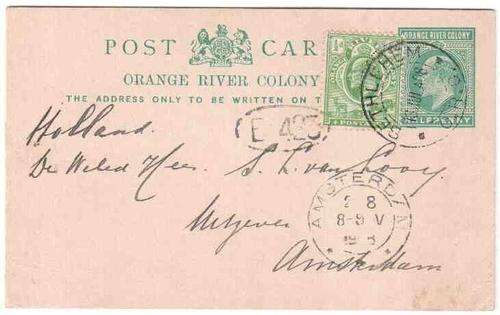 POST CAR
ORANGE RIVER COLONY
THE ADDRESS ONLY TO BE WRITTEN ON T
ORANGE RIVER COLONY
HALFPENNY
BETHLEHEM
E 423
Holland.
De Weled Heer S. L. van Looy
Uitgever
Amsterdam
AMSTERDAM
2 8
8-9 V